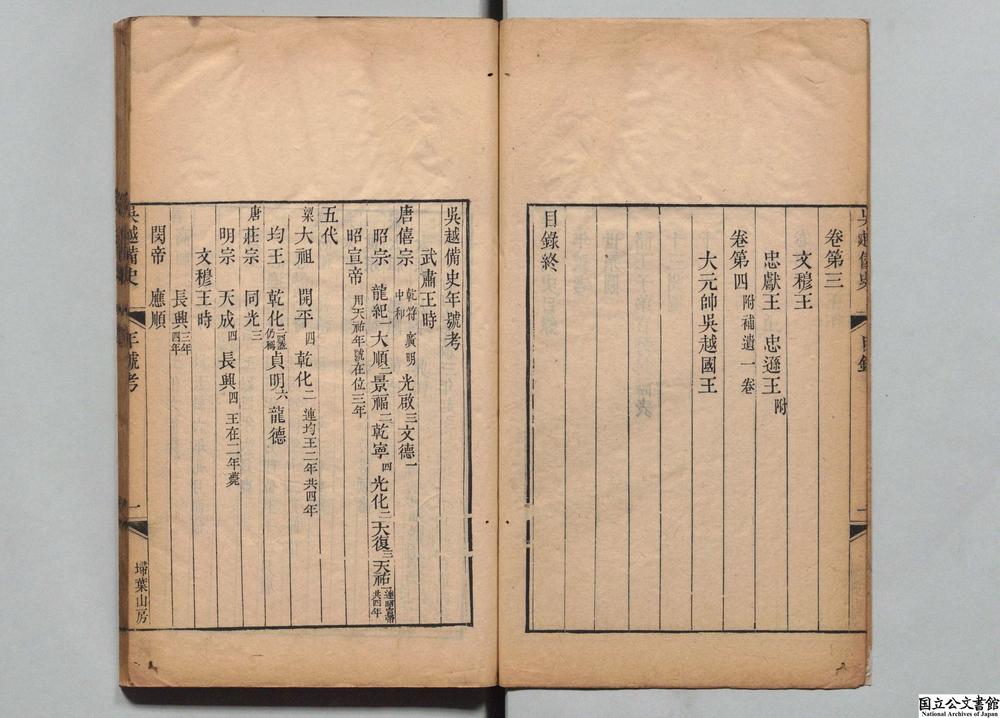 吳越備史 目錄
卷第三
文穆王
忠獻王 忠遜王附
卷第四 附補遺一卷
大元帥吳越國王
目錄終
吳越備史年號考
武肅王時
唐僖宗 乾符 中和 廣明 光啟三 文德一
昭宗 龍紀一 大順二 景福二 乾寧四 光化二 天復三 天祐一 連昭宣帝共四年
昭宣帝 用天祐年號在位三年
五代
梁 太祖 開平四 乾化二 連均王二年共四年
均王 乾化二 仍稱 貞明六 龍德
唐 莊宗 同光三
明宗 天成四 長興四 王在二年薨
文穆王時
長興 三年 四年
閔帝 應順
吳越備史 年號考 一 埽葉山房
国立公文書館
National Archives of Japan